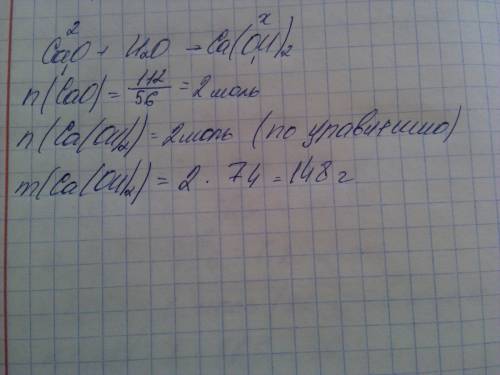 2 x
CaO + H2O → Ca(OH)2
1 1
n(CaO) = 112/56 = 2 моль
n(Ca(OH)2) = 2 моль (по уравнению)
m(Ca(OH)2) = 2 · 74 = 148 г